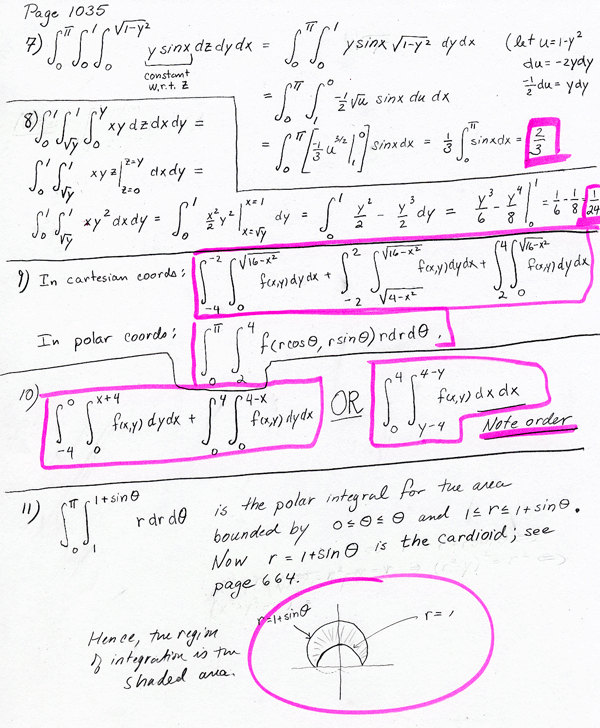 Page 1035
7) ∫₀^π ∫₀^1 ∫₀^√(1-y²) y sinx dz dy dx = ∫₀^π ∫₀^1 y sinx √(1-y²) dy dx (let u=1-y²
constant w.r.t. z
du = -2ydy
-1/2 du = ydy
= ∫₀^π ∫₁^0 -1/2 √u sinx du dx
= ∫₀^π [-1/3 u^(3/2) |₁^0] sinx dx = 1/3 ∫₀^π sinx dx = 2/3
8) ∫₀^1 ∫_√y^1 ∫₀^y xy dz dx dy =
∫₀^1 ∫_√y^1 xyz |_(z=0)^(z=y) dx dy =
∫₀^1 ∫_√y^1 xy² dx dy = ∫₀^1 x²/2 y² |_(x=√y)^(x=1) dy = ∫₀^1 y²/2 - y³/2 dy = y³/6 - y⁴/8 |₀^1 = 1/6 - 1/8 = 1/24
9) In cartesian coords: ∫_-4^-2 ∫₀^√(16-x²) f(x,y) dy dx + ∫_-2^2 ∫_√(4-x²)^√(16-x²) f(x,y) dy dx + ∫₂^4 ∫₀^√(16-x²) f(x,y) dy dx
In polar coords: ∫₀^π ∫₂^4 f(rcosθ, rsinθ) r dr dθ.
10) ∫_-4^0 ∫₀^(x+4) f(x,y) dy dx + ∫₀^4 ∫₀^(4-x) f(x,y) dy dx OR ∫₀^4 ∫_(y-4)^(4-y) f(x,y) dx dx
Note order
11) ∫₀^π ∫₁^(1+sinθ) r dr dθ is the polar integral for the area
bounded by 0≤θ≤θ and 1≤r≤1+sinθ.
Now r = 1+sinθ is the cardioid; see
page 664.
r=1+sinθ
r=1
Hence, the region
of integration is the
shaded area.